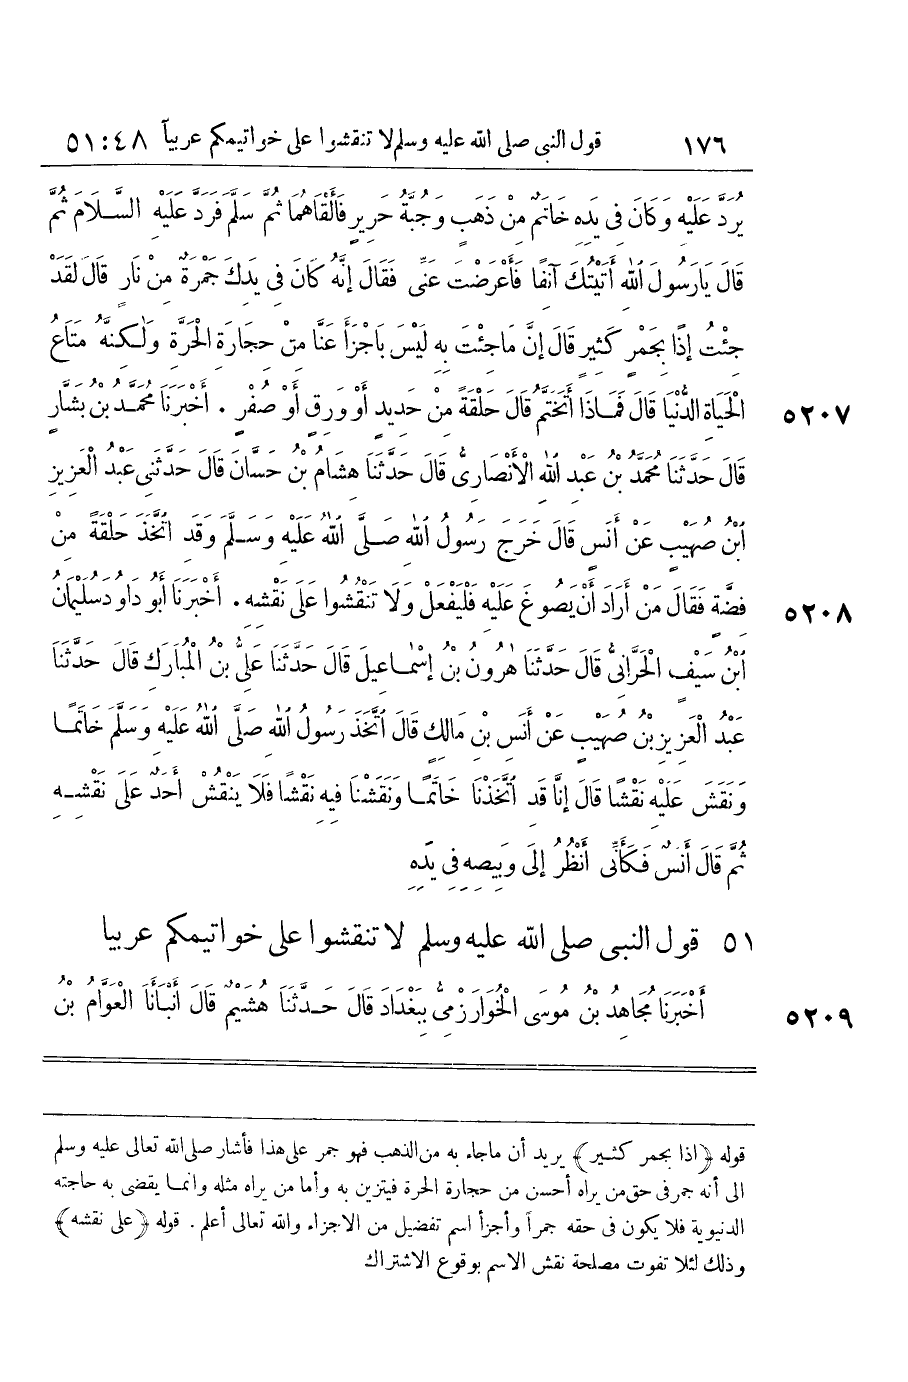 ١٧٦ قول النبى صلى الله عليه وسلم لا تنقشوا على خواتيمكم عربياً ٥١:٤٨
يُرَدَّ عَلَيْهِ وَكَانَ فِى يَدِهِ خَاتَمٌ مِنْ ذَهَبٍ وَجُبَّةُ حَرِيرٍ فَأَلْقَاهُمَا ثُمَّ سَلَّمَ فَرَدَّ عَلَيْهِ السَّلَامَ ثُمَّ
قَالَ يَارَسُولَ اللهِ أَتَيْتُكَ آنِفًا فَأَعْرَضْتَ عَنِّى فَقَالَ إِنَّهُ كَانَ فِى يَدِكَ جَمْرَةٌ مِنْ نَارٍ قَالَ لَقَدْ
جِئْتُ إِذًا بِجَمْرٍ كَثِيرٍ قَالَ إِنَّ مَاجِئْتَ بِهِ لَيْسَ بِأَجْزَأَ عَنَّا مِنْ حِجَارَةِ الْحَرَّةِ وَلٰكِنَّهُ مَتَاعُ
الْحَيَاةِ الدُّنْيَا قَالَ فَمَاذَا أَتَخَتَّمُ قَالَ حَلْقَةً مِنْ حَدِيدٍ أَوْ وَرِقٍ أَوْ صُفْرٍ . أَخْبَرَنَا مُحَمَّدُ بْنُ بَشَّارٍ ٥٢٠٧
قَالَ حَدَّثَنَا مُحَمَّدُ بْنُ عَبْدِ اللهِ الْأَنْصَارِىُّ قَالَ حَدَّثَنَا هِشَامُ بْنُ حَسَّانَ قَالَ حَدَّثَنِى عَبْدُ الْعَزِيزِ
ابْنُ صُهَيْبٍ عَنْ أَنَسٍ قَالَ خَرَجَ رَسُولُ اللهِ صَلَّى اللهُ عَلَيْهِ وَسَلَّمَ وَقَدِ اتَّخَذَ حَلْقَةً مِنْ
فِضَّةٍ فَقَالَ مَنْ أَرَادَ أَنْ يَصُوغَ عَلَيْهِ فَلْيَفْعَلْ وَلَا تَنْقُشُوا عَلَى نَقْشِهِ . أَخْبَرَنَا أَبُو دَاوُدَ سُلَيْمَانُ ٥٢٠٨
ابْنُ سَيْفٍ الْحَرَّانِىُّ قَالَ حَدَّثَنَا هٰرُونُ بْنُ إِسْمَاعِيلَ قَالَ حَدَّثَنَا عَلِىُّ بْنُ الْمُبَارَكِ قَالَ حَدَّثَنَا
عَبْدُ الْعَزِيزِ بْنُ صُهَيْبٍ عَنْ أَنَسِ بْنِ مَالِكٍ قَالَ اتَّخَذَ رَسُولُ اللهِ صَلَّى اللهُ عَلَيْهِ وَسَلَّمَ خَاتَمًا
وَنَقَشَ عَلَيْهِ نَقْشًا قَالَ إِنَّا قَدِ اتَّخَذْنَا خَاتَمًا وَنَقَشْنَا فِيهِ نَقْشًا فَلَا يَنْقُشْ أَحَدٌ عَلَى نَقْشِهِ
ثُمَّ قَالَ أَنَسٌ فَكَأَنِّى أَنْظُرُ إِلَى وَبِيصِهِ فِى يَدِهِ
٥١ قول النبى صلى الله عليه وسلم لا تنقشوا على خواتيمكم عربيا
أَخْبَرَنَا مُجَاهِدُ بْنُ مُوسَى الْخُوَارَزْمِىُّ بِبَغْدَادَ قَالَ حَدَّثَنَا هُشَيْمٌ قَالَ أَنْبَأَنَا الْعَوَّامُ بْنُ ٥٢٠٩
قوله ﴿اذا بجمر كثير﴾ يريد أن ماجاء به من الذهب فهو جمر على هذا فأشار صلى الله تعالى عليه وسلم
الى أنه جمر فى حق من يراه أحسن من حجارة الحرة فيتزين به وأما من يراه مثله وانما يقضى به حاجته
الدنيوية فلا يكون فى حقه جمراً وأجزأ اسم تفضيل من الاجزاء والله تعالى أعلم . قوله ﴿على نقشه﴾
وذلك لئلا تفوت مصلحة نقش الاسم بوقوع الاشتراك